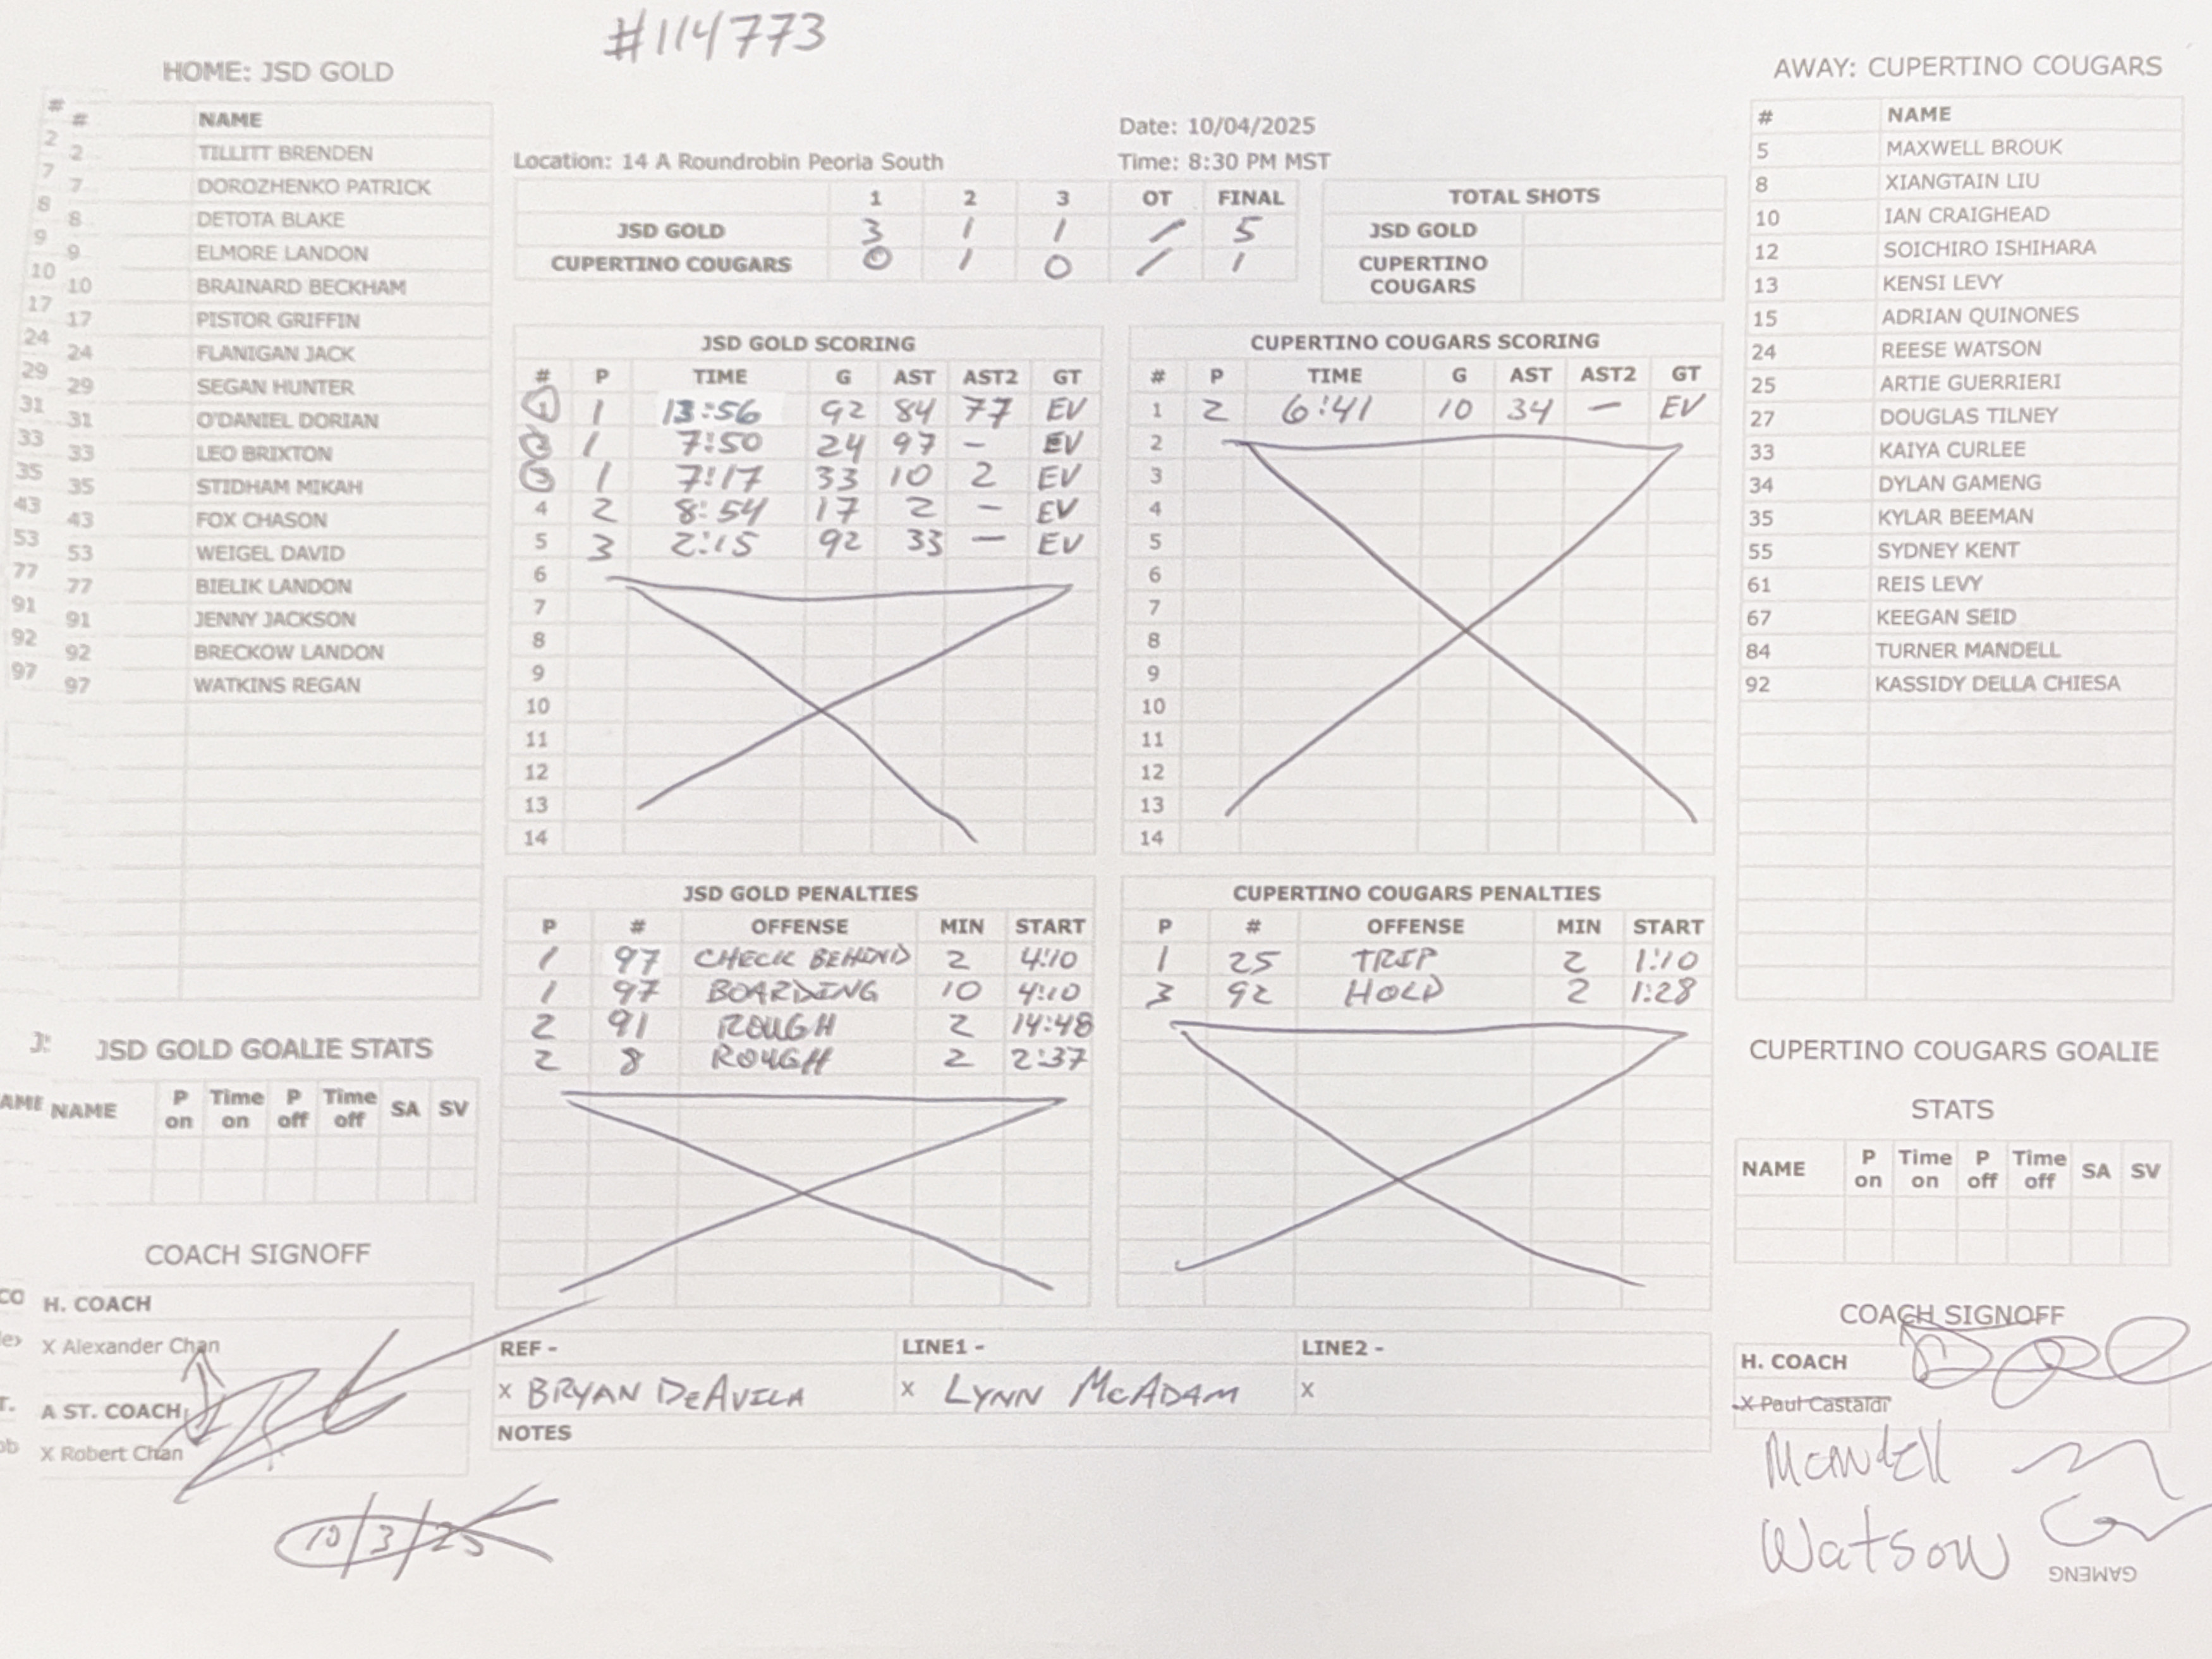 #114773
HOME: JSD GOLD
# # NAME
2 2 TILLITT BRENDEN
7 7 DOROZHENKO PATRICK
8 8 DETOTA BLAKE
9 9 ELMORE LANDON
10 10 BRAINARD BECKHAM
17 17 PISTOR GRIFFIN
24 24 FLANIGAN JACK
29 29 SEGAN HUNTER
31 31 O'DANIEL DORIAN
33 33 LEO BRIXTON
35 35 STIDHAM MIKAH
43 43 FOX CHASON
53 53 WEIGEL DAVID
77 77 BIELIK LANDON
91 91 JENNY JACKSON
92 92 BRECKOW LANDON
97 97 WATKINS REGAN
J: JSD GOLD GOALIE STATS
AME NAME P on Time on P off Time off SA SV
COACH SIGNOFF
CO H. COACH
X Alexander Chan
T. A ST. COACH
ob X Robert Chan
10/3/25
Date: 10/04/2025
Location: 14 A Roundrobin Peoria South Time: 8:30 PM MST
1 2 3 OT FINAL
JSD GOLD 3 1 1 / 5
CUPERTINO COUGARS 0 1 0 / 1
TOTAL SHOTS
JSD GOLD
CUPERTINO
COUGARS
JSD GOLD SCORING
# P TIME G AST AST2 GT
1 1 13:56 92 84 77 EV
2 1 7:50 24 97 - EV
3 1 7:17 33 10 2 EV
4 2 8:54 17 2 - EV
5 3 2:15 92 33 - EV
6
7
8
9
10
11
12
13
14
CUPERTINO COUGARS SCORING
# P TIME G AST AST2 GT
1 2 6:41 10 34 - EV
2
3
4
5
6
7
8
9
10
11
12
13
14
JSD GOLD PENALTIES
P # OFFENSE MIN START
1 97 CHECK BEHIND 2 4:10
1 97 BOARDING 10 4:10
2 91 ROUGH 2 14:48
2 8 ROUGH 2 2:37
CUPERTINO COUGARS PENALTIES
P # OFFENSE MIN START
1 25 TRIP 2 1:10
3 92 HOLD 2 1:28
REF - LINE1 - LINE2 -
X BRYAN DeAVILA X LYNN McADAM X
NOTES
AWAY: CUPERTINO COUGARS
# NAME
5 MAXWELL BROUK
8 XIANGTAIN LIU
10 IAN CRAIGHEAD
12 SOICHIRO ISHIHARA
13 KENSI LEVY
15 ADRIAN QUINONES
24 REESE WATSON
25 ARTIE GUERRIERI
27 DOUGLAS TILNEY
33 KAIYA CURLEE
34 DYLAN GAMENG
35 KYLAR BEEMAN
55 SYDNEY KENT
61 REIS LEVY
67 KEEGAN SEID
84 TURNER MANDELL
92 KASSIDY DELLA CHIESA
CUPERTINO COUGARS GOALIE
STATS
NAME P on Time on P off Time off SA SV
COACH SIGNOFF
H. COACH
X Paul Castaldi
Mandell
Watson
GAMENG